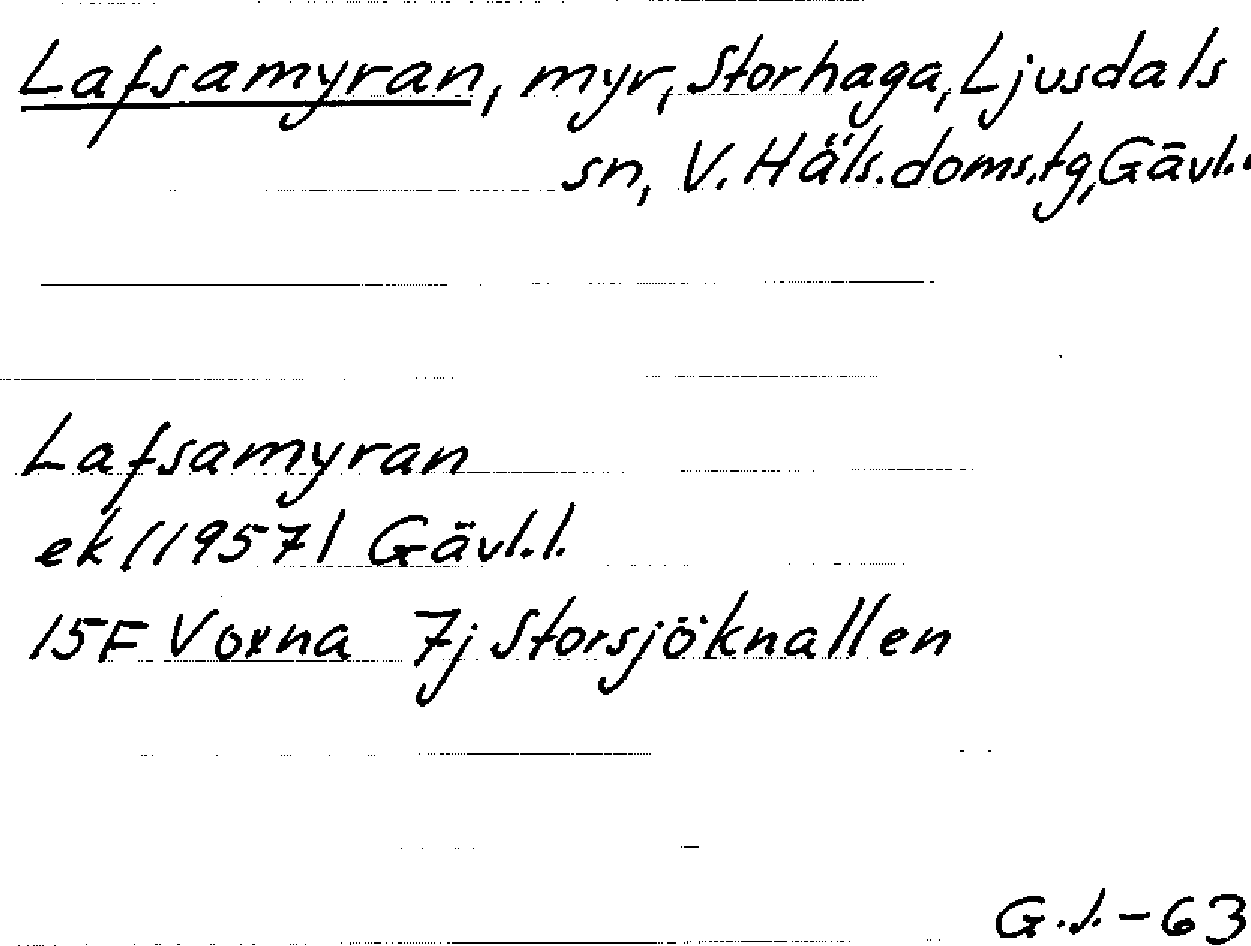 Lafsamyran, myr, Storhaga, Ljusdals
sn, V. Häls. doms. tg, Gävl.
Lafsamyran
ek (1957) Gävl. l.
15F Voxna 7j Storsjöknallen
G.J.-63